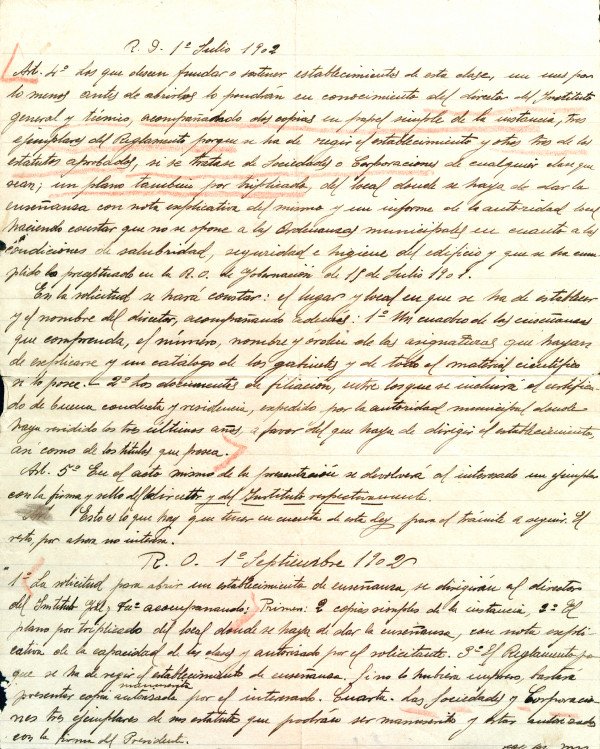 R. D. 1º Julio 1902
Art. 4º Los que deseen fundar o sostener establecimientos de esta clase, un mes por
lo menos antes de abrirlos lo pondrán en conocimiento del director del Instituto
general y técnico, acompañando dos copias en papel simple de la instancia, tres
ejemplares del Reglamento porque se ha de regir el establecimiento y otros tres de los
estatutos aprobados, si se tratase de Sociedades o Corporaciones de cualquier clase que
sean; un plano tambien por triplicado, del local donde se haya de dar la
enseñanza con nota explicativa del mismo y un informe de la autoridad local
haciendo constar que no se opone a las Ordenanzas municipales en cuanto a las
condiciones de salubridad, seguridad e higiene del edificio y que se ha cum-
plido lo preceptuado en la R. O. de Gobernación de 18 de Julio 1901.
En la solicitud se hará constar: el lugar y local en que se ha de establecer
y el nombre del director, acompañando además: 1º Un cuadro de las enseñanzas
que comprenda, el número, nombre y orden de las asignaturas que hayan
de explicarse y un catálogo de los gabinetes y de todo el material científico
si lo posee. - 2º Los documentos de filiación, entre los que se incluirá el certifica-
do de buena conducta y residencia, expedido por la autoridad municipal donde
haya residido los tres últimos años, a favor del que haya de dirigir el establecimiento,
así como de los títulos que posea.
Art. 5º En el acto mismo de la presentación se devolverá al interesado un ejemplar
con la firma y sello del director y del Instituto respectivamente.
Esto es lo que hay que tener en cuenta de esta ley para el trámite a seguir. El
resto, por ahora no interesa.
R. O. 1º Septiembre 1902
1º La solicitud para abrir un establecimiento de enseñanza, se dirigirán al director
del Instituto Gral. y Tco acompañando: Primero: 2 copias simples de la instancia, 2º El
plano por triplicado del local donde se haya de dar la enseñanza, con nota expli-
cativa de la capacidad de las clases y autorizado por el solicitante. 3º El Reglamento por-
que se ha de regir el establecimiento de enseñanza. Si no lo hubiera impreso, bastará
presentar copia manuscrita autorizada por el interesado. Cuarta. Las Sociedades y Corporacio-
nes tres ejemplares de sus estatutos que podrán ser manuscritos y estar autorizados
con la firma del Presidente.